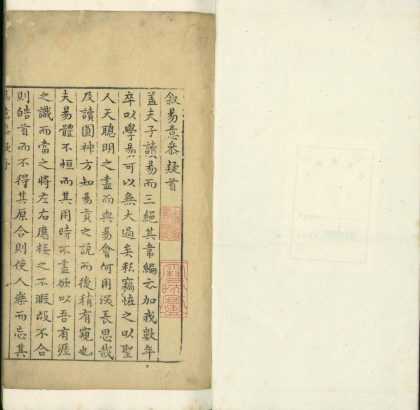 敘易意參疑首
蓋夫子讀易而三絕其韋編云加我數年
卒以學易可以無大過矣於竊怪之以聖
人天聰明之盡而與易會何用深長思哉
及讀圓神方知易貢之說而後稍有窺也
夫易體不恒而其用時不盡欲以吾有涯
之識而當之將左右應接之不暇故不合
則皓首而不得其原合則使人樂而忘其